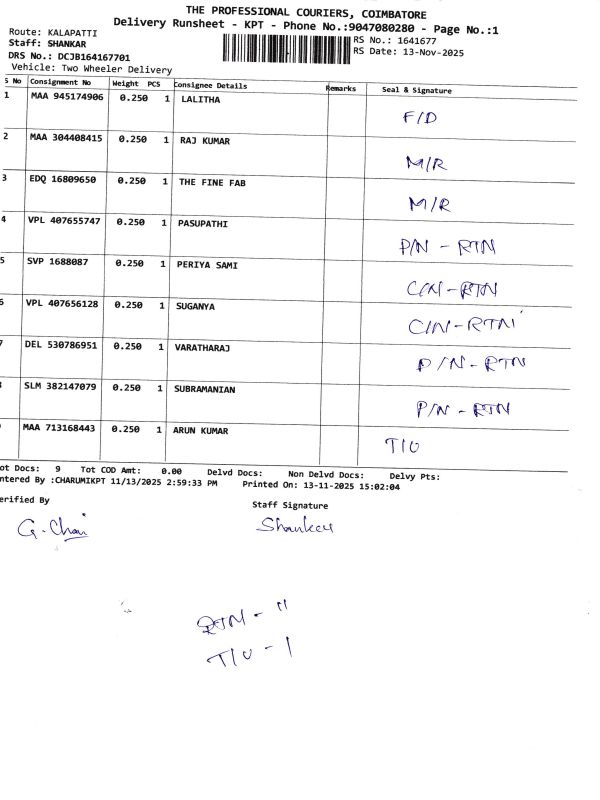 THE PROFESSIONAL COURIERS, COIMBATORE
Delivery Runsheet - KPT - Phone No.:9047080280 - Page No.:1
Route: KALAPATTI
Staff: SHANKAR
RS No.: 1641677
DRS No.: DCJB164167701
RS Date: 13-Nov-2025
Vehicle: Two Wheeler Delivery
S No Consignment No Weight PCS Consignee Details Remarks Seal & Signature
1 MAA 945174906 0.250 1 LALITHA F/D
2 MAA 304408415 0.250 1 RAJ KUMAR M/R
3 EDQ 16809650 0.250 1 THE FINE FAB M/R
4 VPL 407655747 0.250 1 PASUPATHI P/N - RTN
5 SVP 1688087 0.250 1 PERIYA SAMI C/N - RTN
6 VPL 407656128 0.250 1 SUGANYA C/N - RTN
7 DEL 530786951 0.250 1 VARATHARAJ P/N - RTN
SLM 382147079 0.250 1 SUBRAMANIAN P/N - RTN
MAA 713168443 0.250 1 ARUN KUMAR T/U
ot Docs: 9 Tot COD Amt: 0.00 Delvd Docs: Non Delvd Docs: Delvy Pts:
ntered By :CHARUMIKPT 11/13/2025 2:59:33 PM Printed On: 13-11-2025 15:02:04
erified By
Staff Signature
RTN - 11
T/U - 1